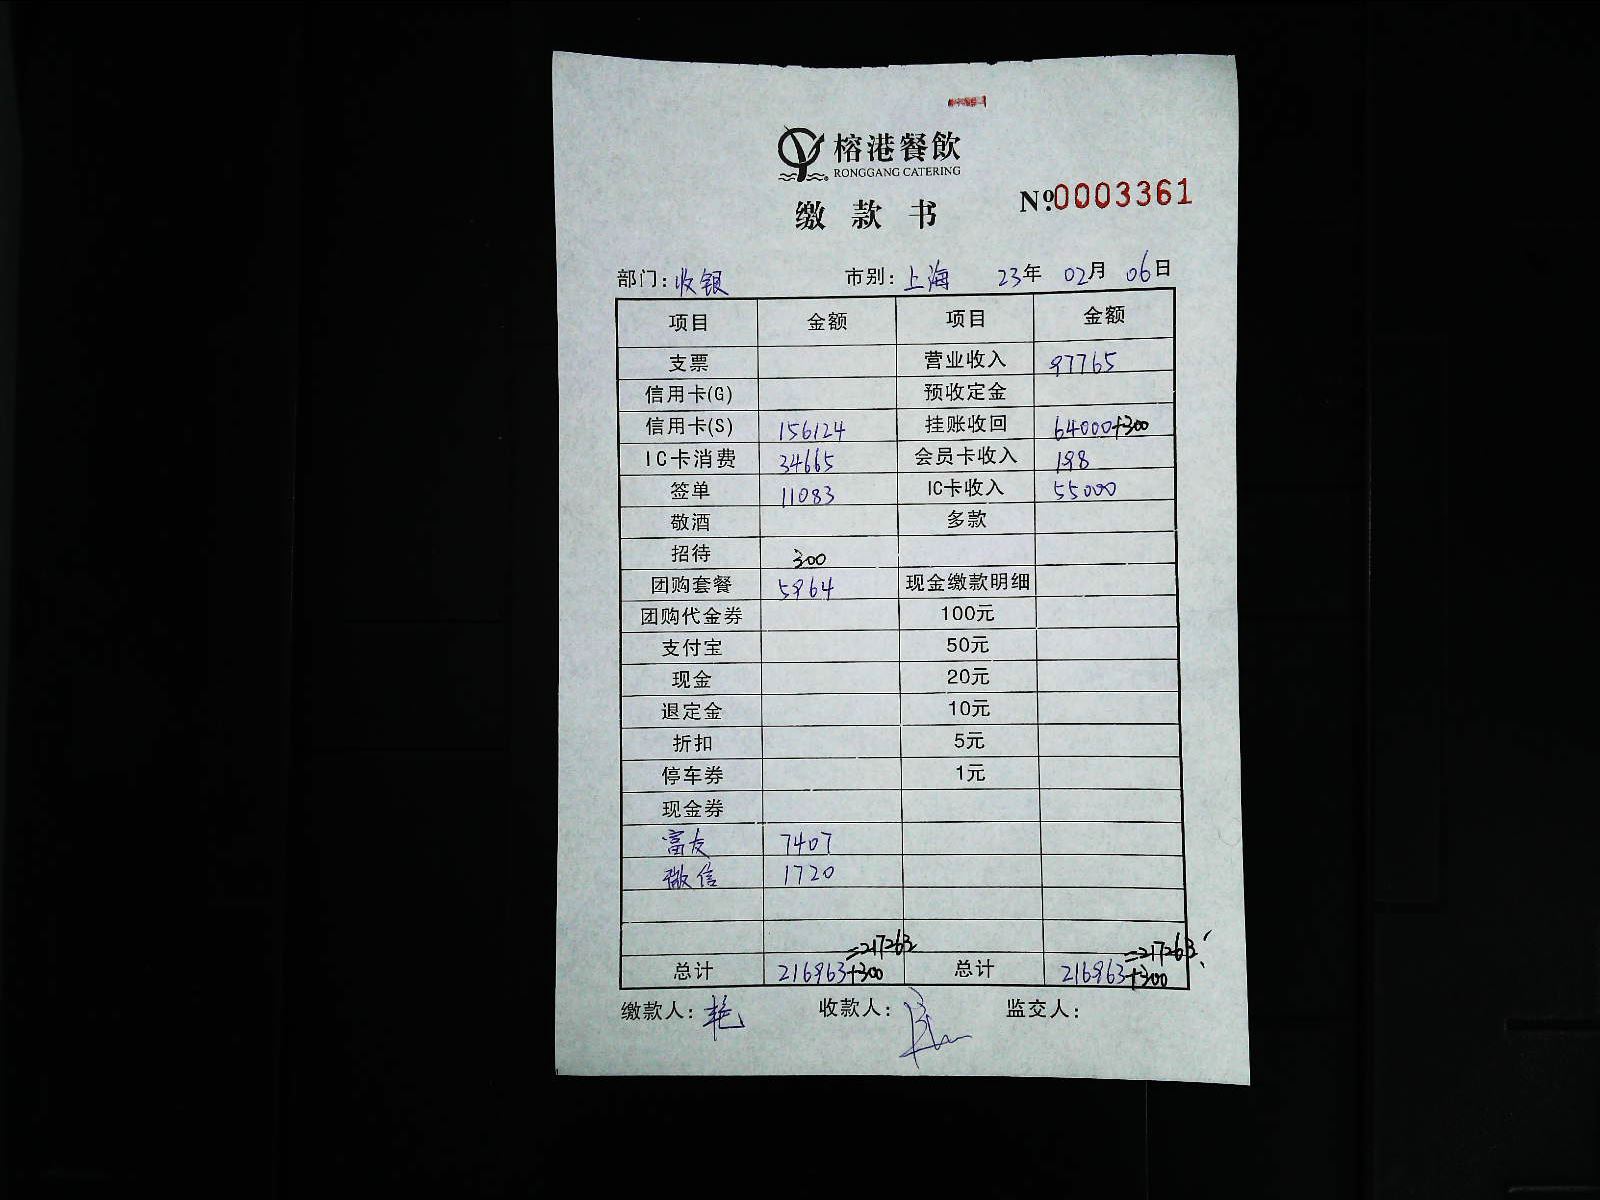 榕港餐飲
RONGGANG CATERING
缴款书 Nº 0003361
部门：收银 市别：上海 23年 02月 06日
项目 金额 项目 金额
支票 营业收入 97765
信用卡(G) 预收定金
信用卡(S) 156124 挂账收回 64000+300
IC卡消费 34665 会员卡收入 198
签单 11083 IC卡收入 55000
敬酒 多款
招待 300
团购套餐 5964 现金缴款明细
团购代金券 100元
支付宝 50元
现金 20元
退定金 10元
折扣 5元
停车券 1元
现金券
富友 7407
微信 1720
=217263 =217263
总计 216963+300 总计 216963+300
缴款人：艳 收款人： 监交人：